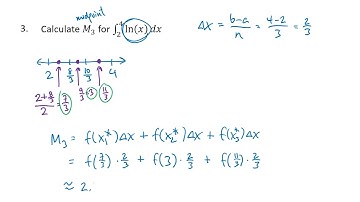 midpoint
3. Calculate M₃ for ∫₂⁴ ln(x) dx
Δx = (b-a)/n = (4-2)/3 = 2/3
2 8/3 10/3 4
(2+8/3)/2 = 7/3 9/3=3 11/3
M₃ = f(x₁*)Δx + f(x₂*)Δx + f(x₃*)Δx
= f(7/3)·2/3 + f(3)·2/3 + f(11/3)·2/3
≈ 2.